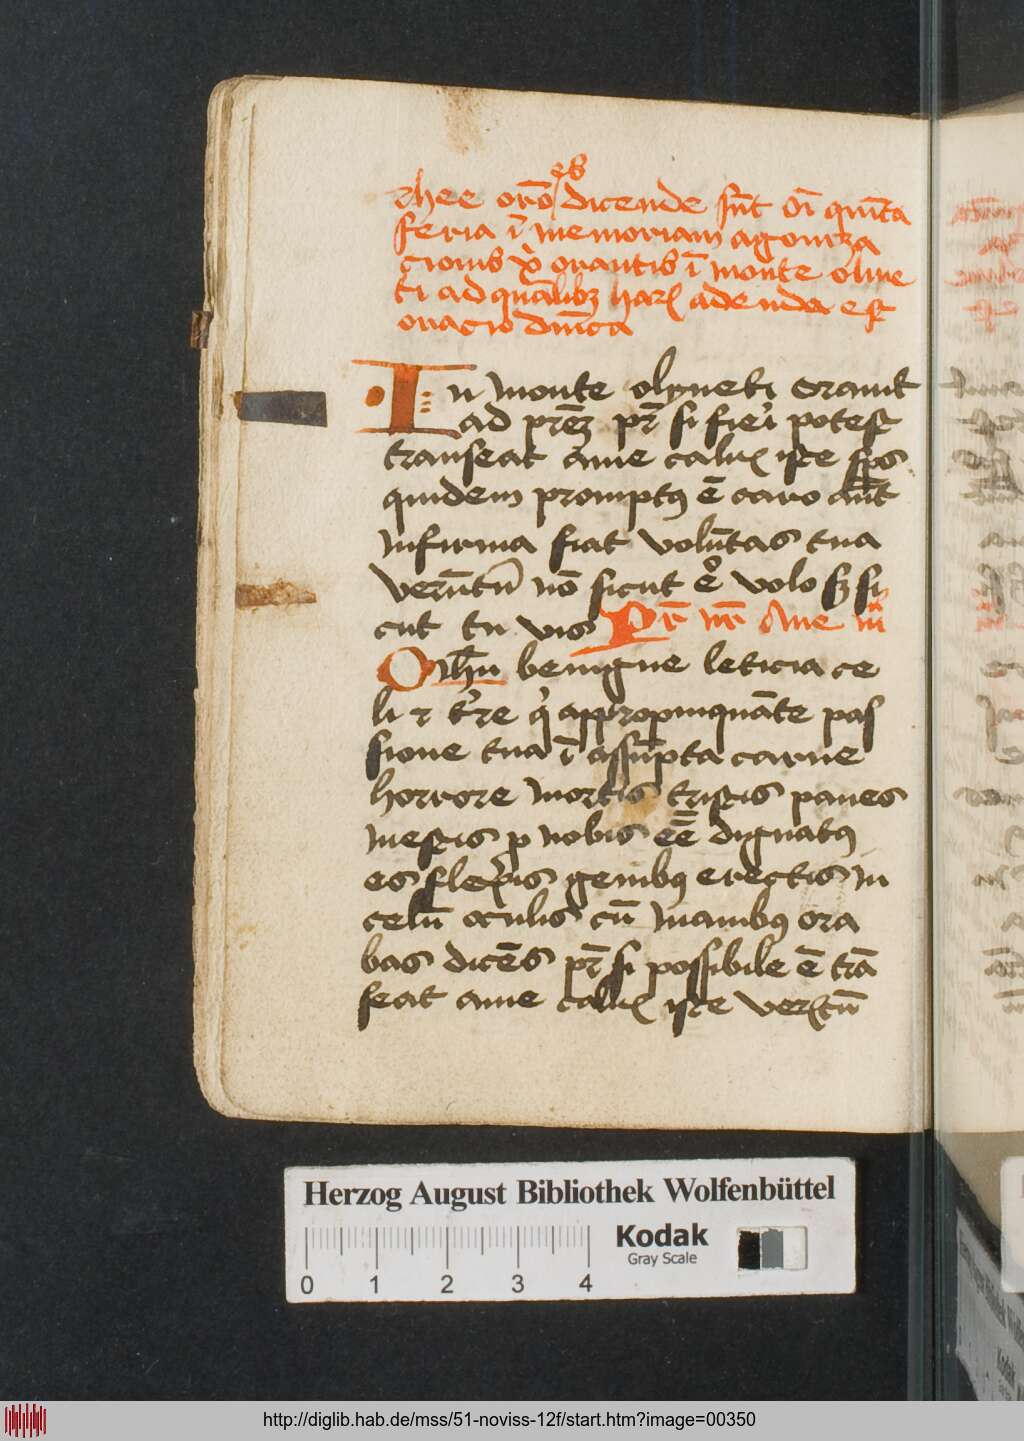 es
hee orōes dicende sūt oī quīta
feria ī memoriam agoniza
cionis xp̄ orantis ī monte oliue
ti ad quālibꝫ harꝝ adenda est
oracio dn̄ica
In monte olyueti orauit
ad p̄rēꝫ pr̄ si fieri potest
transeat a me calix iste sp̄s
quidem promptꝰ ē caro aūt
infirma fiat volūtas tua
verūtū nō sicut eᵒ volo sꝫ si
cut tu vis Pr̄ nr̄ Aue m̄
O ih̄u benigne leticia ce
li ⁊ tͥre qͥ appropinquāte pas
sione tua ī assūpta carne
horrore mortis tristis paues
mestis p nobis eē dignatꝰ
es flexis genibꝰ erectis in
celū oculis cū manibꝰ ora
bas dicēs pr̄ si possibile ē trā
seat a me calix iste verꝝtū
Herzog August Bibliothek Wolfenbüttel
Kodak
Gray Scale
0 1 2 3 4
http://diglib.hab.de/mss/51-noviss-12f/start.htm?image=00350